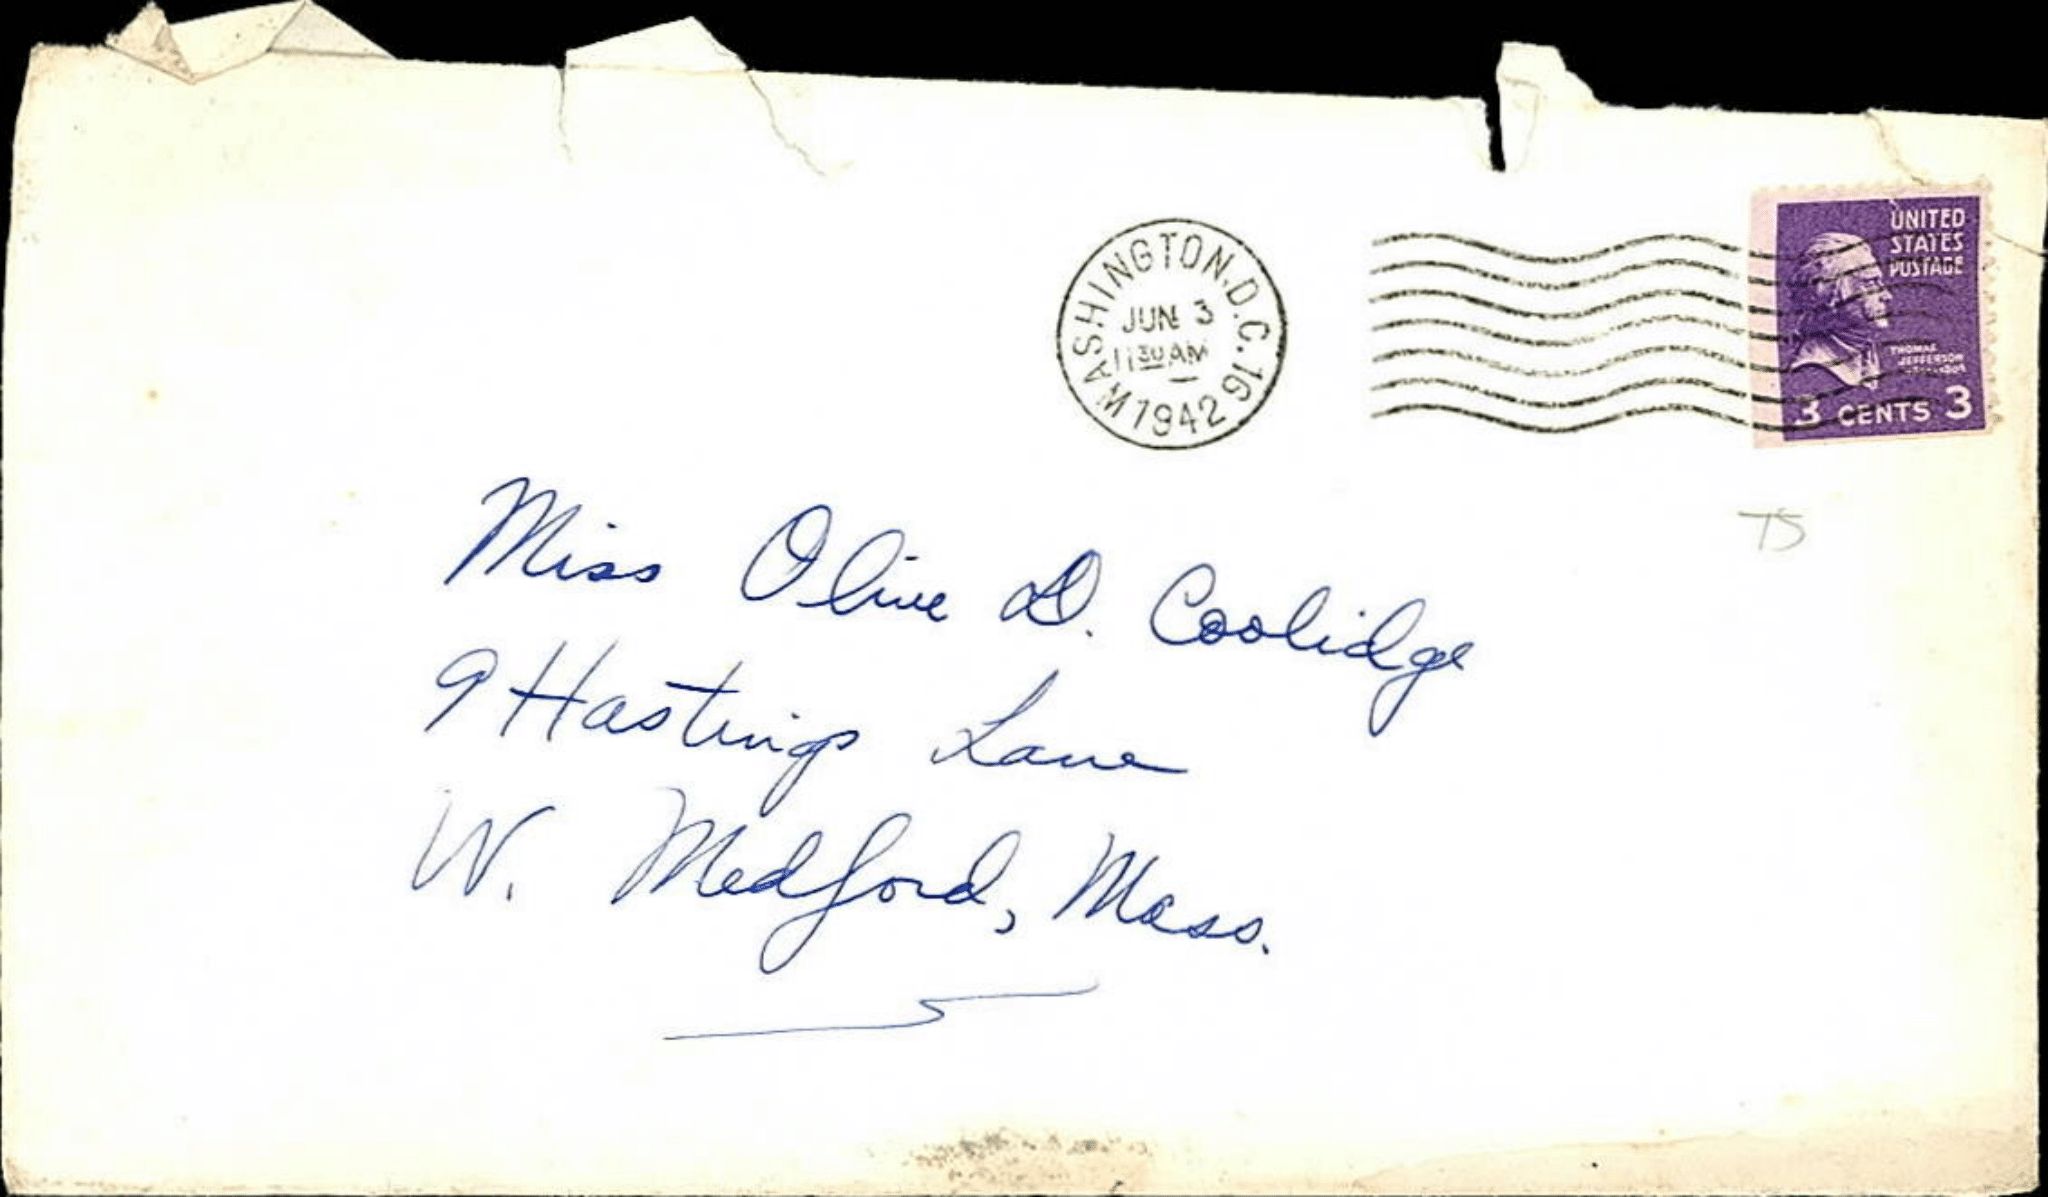 WASHINGTON, D.C. 16
JUN 3
11 30 AM
1942
UNITED
STATES
POSTAGE
THOMAS
JEFFERSON
3 CENTS 3
Miss Olive D. Coolidge
9 Hastings Lane
W. Medford, Mass.